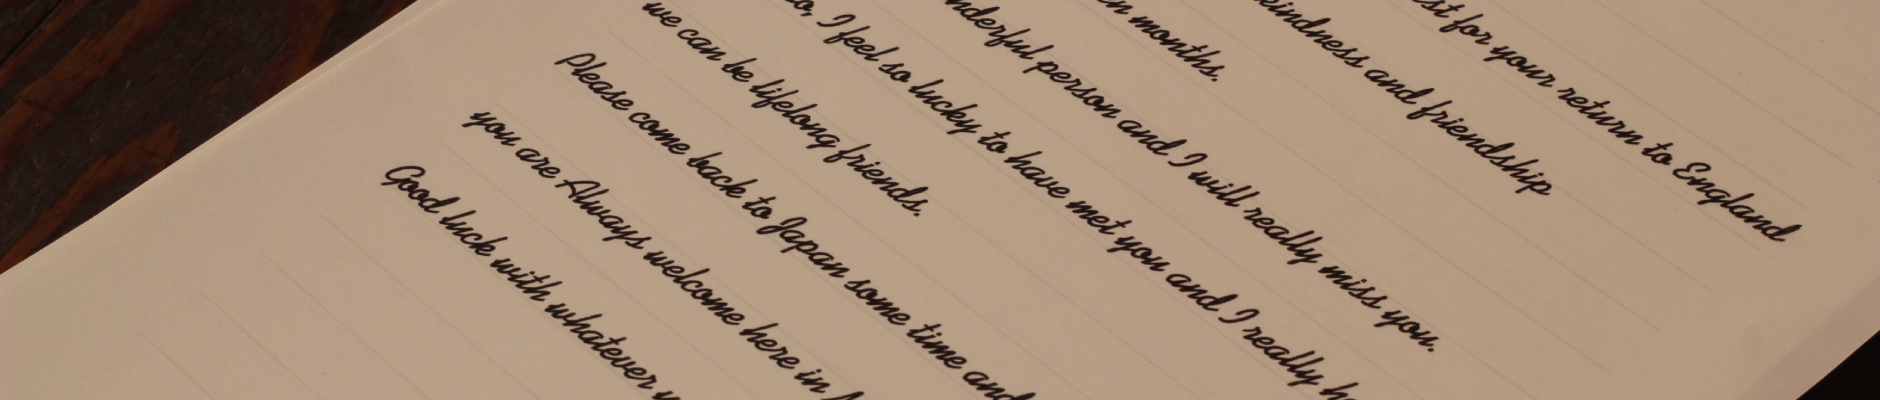 for your return to England
kindness and friendship
months.
person and I will really miss you.
I feel so lucky to have met you and I really
we can be lifelong friends.
Please come back to Japan some time and
you are Always welcome here in
Good luck with whatever